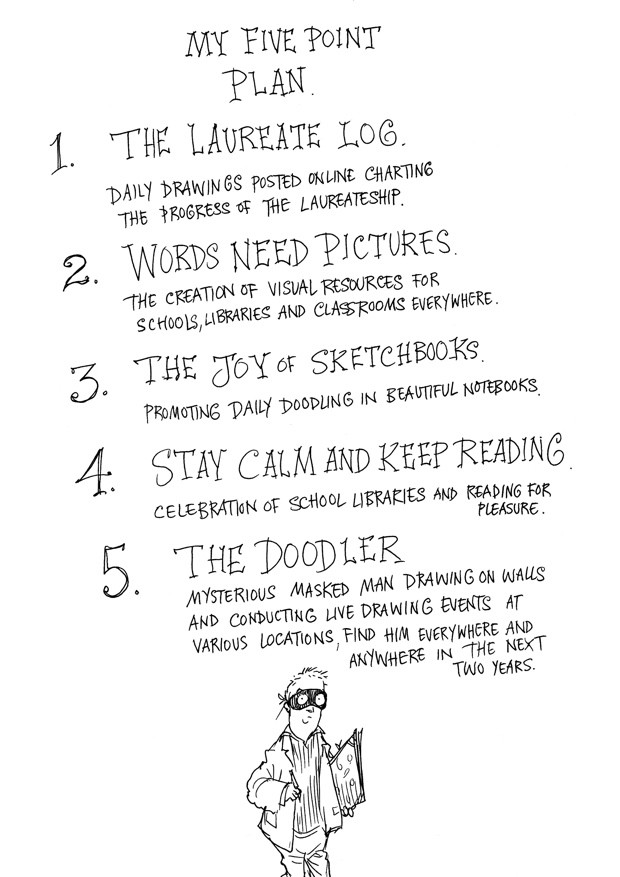 MY FIVE POINT
PLAN.
1. THE LAUREATE LOG.
DAILY DRAWINGS POSTED ONLINE CHARTING
THE PROGRESS OF THE LAUREATESHIP.
2. WORDS NEED PICTURES.
THE CREATION OF VISUAL RESOURCES FOR
SCHOOLS, LIBRARIES AND CLASSROOMS EVERYWHERE.
3. THE JOY OF SKETCHBOOKS.
PROMOTING DAILY DOODLING IN BEAUTIFUL NOTEBOOKS.
4. STAY CALM AND KEEP READING.
CELEBRATION OF SCHOOL LIBRARIES AND READING FOR
PLEASURE.
5. THE DOODLER
MYSTERIOUS MASKED MAN DRAWING ON WALLS
AND CONDUCTING LIVE DRAWING EVENTS AT
VARIOUS LOCATIONS, FIND HIM EVERYWHERE AND
ANYWHERE IN THE NEXT
TWO YEARS.